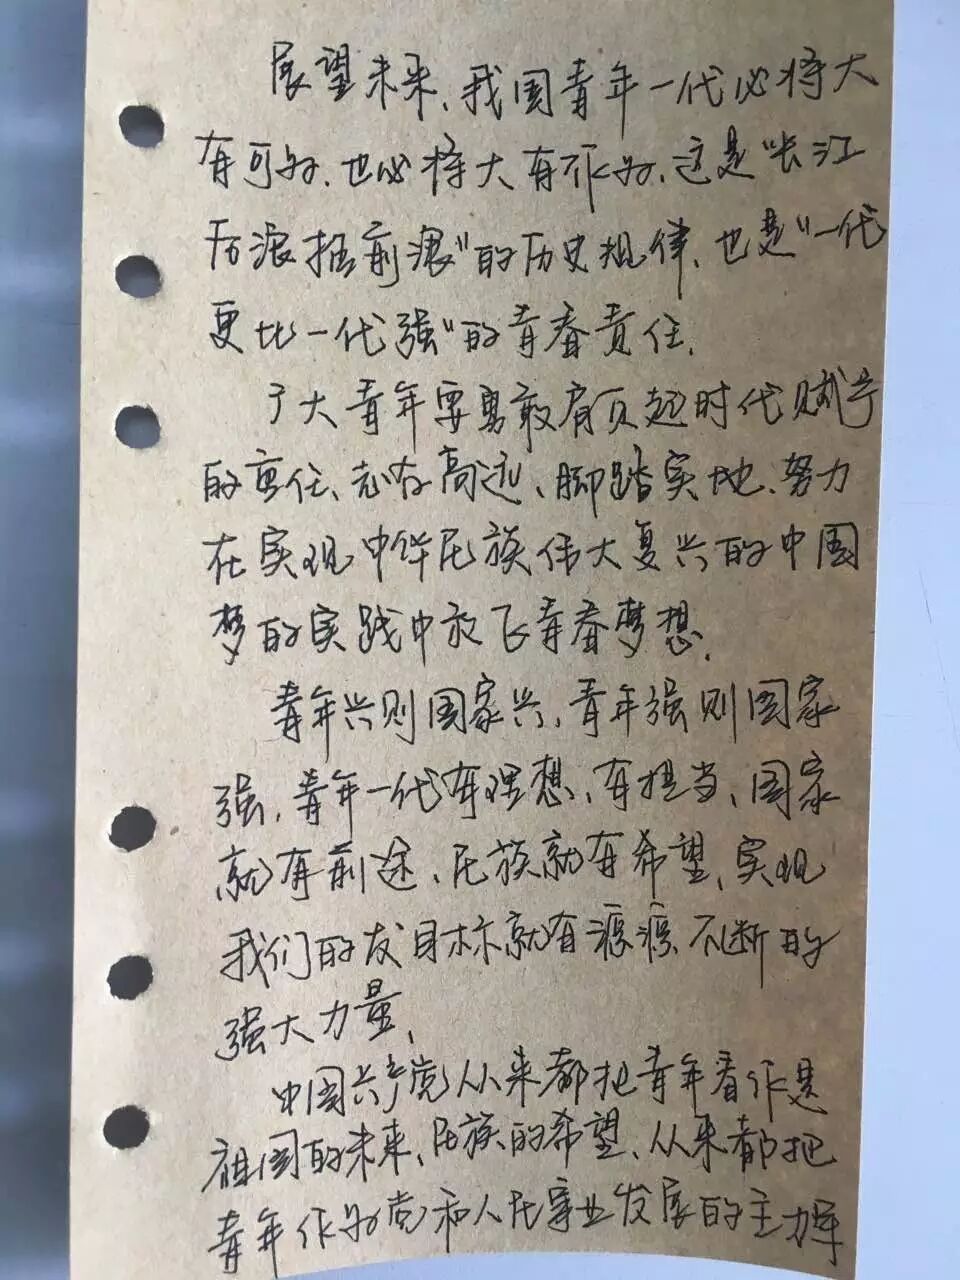 展望未来,我国青年一代必将大
有可为,也必将大有作为,这是"长江
后浪推前浪"的历史规律,也是"一代
更比一代强"的青春责任,
广大青年要勇敢肩负起时代赋予
的重任、志存高远、脚踏实地、努力
在实现中华民族伟大复兴的中国
梦的实践中放飞青春梦想,
青年兴则国家兴,青年强则国家
强,青年一代有理想、有担当、国家
就有前途、民族就有希望,实现
我们的发目标就有源源不断的
强大力量,
中国共产党从来都把青年看作是
祖国的未来、民族的希望、从来都把
青年作为党和人民事业发展的主力军